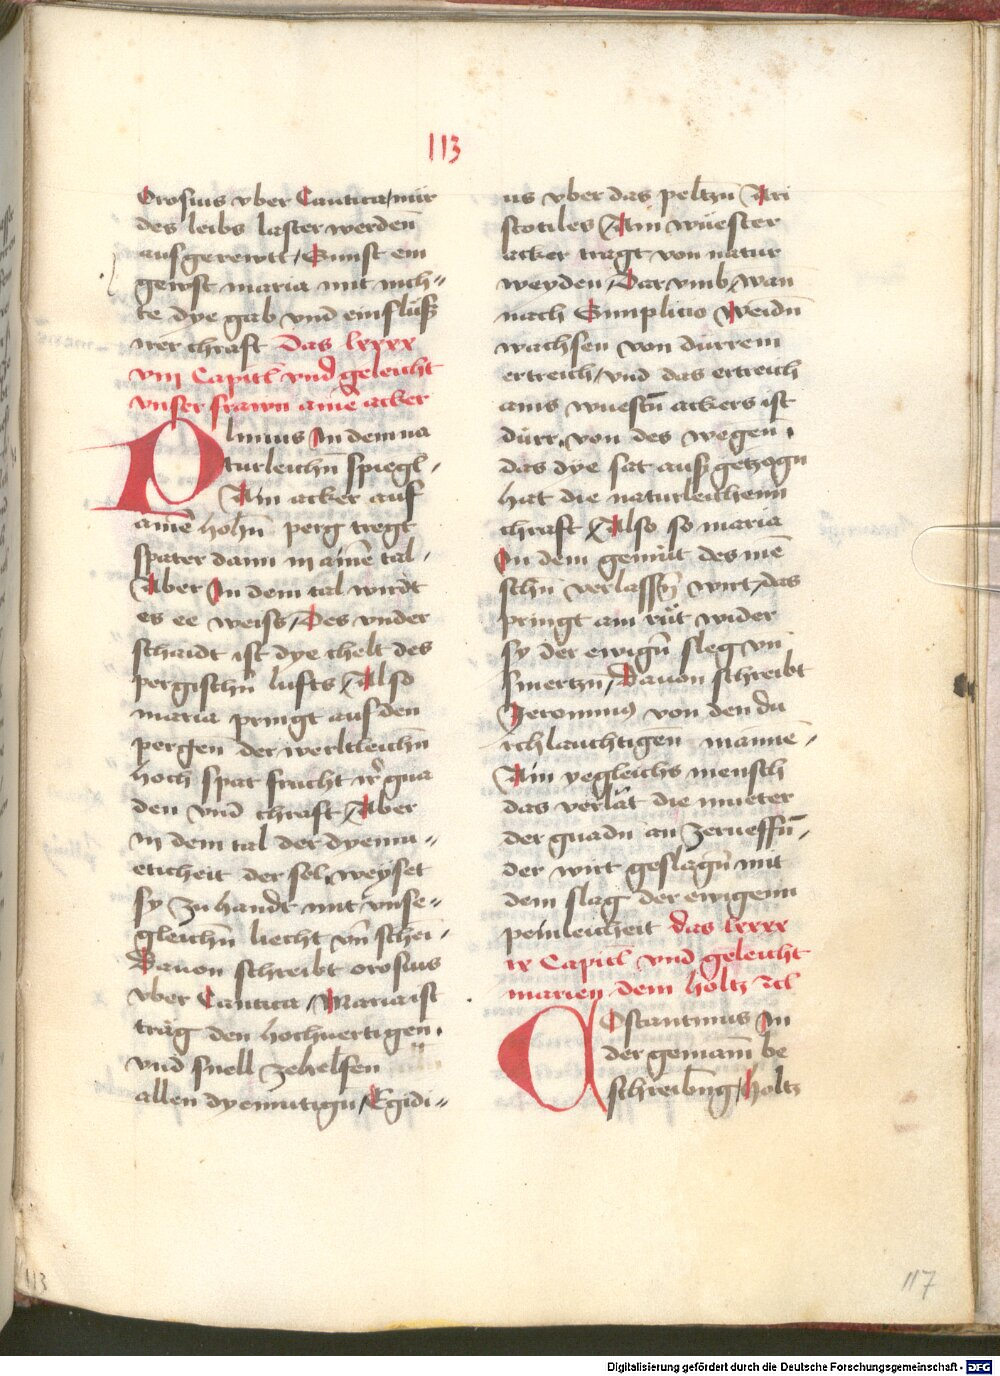 113
Orosius vber Cantica / nür
des leibs laster werden̄
ausgerewtt / Sunst ein
gewst maria mit nich⸗
te dye gab vnd einflüss
irer chraft Das lxxxx
viij Capitl vnd geleicht
vnser frawn aim̄e acker
Plinius In dem na
turleichn̄ spiegl ·
Ain acker auf
aim̄e hohn̄ perg tregt
spater dann in aim̄e tal ·
Aber In dem tal wirdt
es ee weiss / Des vnder
schaidt ist dye chelt des
pergischn̄ lufts / Also
maria pringt auf den
pergen̄ der werltleichn̄
hoch spat frucht ir̄ gna
den vnd chraft / Aber
in dem tal der dyemu⸗
eticheit der sel, weyset
sy zu handt mit vnse⸗
gleichn̄ liecht vn̄ schei ·
Dauon schreibt orosius
vber Cantica / Maria ist
träg den hochuertigen ·
vnd snell zehelfen
allen dyemutign̄ / Egidi⸗
us vber das peltzn̄ Ari
stotiles / Ain wüester
acker tragt von natur
weyden / Dar vmb, wan
nach Simplicio Weidn̄
wachsen von dürrem
ertreich / vnd das ertreich
ains wuestn̄ ackers ist
dürr, von des wegen ·
das dye sat ausz getzogn̄
hat die naturleichenn
chraft / Also so maria
In dem gemüt des mē
schn̄ verlassn̄ wirt / das
pringt ain rüt wider
sy der ewign̄ sleg vn̄
smertzn̄ / Dauon schreibt
Jeronimus von den du
rchlauchtigen mannē ·
Ain yegleichs mensch
das verlät die mueter
der gnadn̄ an zeruessn̄ ·
der wirt geslagn̄ mit
dem slag der ewigenn
peinleicheit das lxxxx
ix Capitl vnd geleicht
marien dem holtz Acl
Constantinus In
der gemain̄ be
schreibn̄g / holtz
113
117
Digitalisierung gefördert durch die Deutsche Forschungsgemeinschaft - DFG